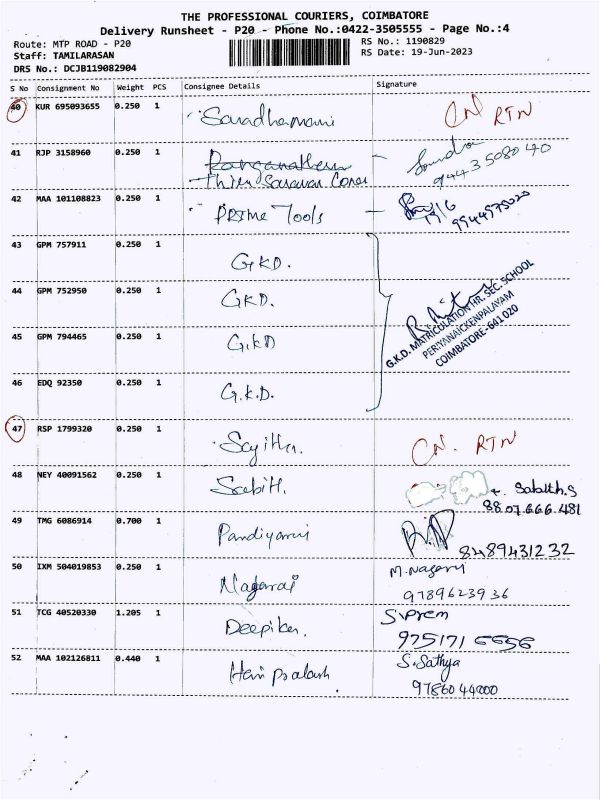 THE PROFESSIONAL COURIERS, COIMBATORE
Delivery Runsheet - P20 - Phone No.:0422-3505555 - Page No.:4
Route: MTP ROAD - P20
RS No.: 1190829
Staff: TAMILARASAN
RS Date: 19-Jun-2023
DRS No.: DCJB119082904
S No Consignment No Weight PCS Consignee Details Signature
40 KUR 695093655 0.250 1 Saradhamani CN RTN
41 RJP 3158960 0.250 1 Ranganathan
Thiru Saravan 94435080 40
42 MAA 101108823 0.250 1 PRIme Tools 19/6
9944975020
43 GPM 757911 0.250 1 GKD.
44 GPM 752950 0.250 1 GKD.
G.K.D. MATRICULATION HR. SEC. SCHOOL
PERIYANAICKENPALAYAM
COIMBATORE-641 020
45 GPM 794465 0.250 1 G.KD
46 EDQ 92350 0.250 1 G.K.D.
47 RSP 1799320 0.250 1 CN. RTN
48 NEY 40091562 0.250 1 Sabith. Sabath.S
8807666 481
49 TMG 6086914 0.700 1 Pandiyaraj
8489431232
50 IXM 504019853 0.250 1 Nagaraj M.Nagaraj
9789623936
51 TCG 40520330 1.205 1 Deepika. S.Prem
975171 6656
52 MAA 102126811 0.440 1 Hari Prakash S.Sathya
9786044000